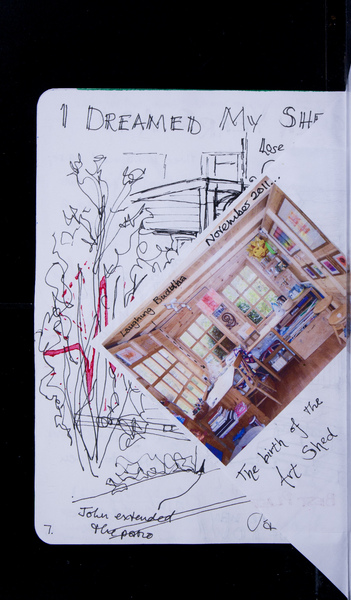 I DREAMED MY SHE
November 2011...
Laughing Buddha
The birth of the
Art Shed
John extended
the patio
7.